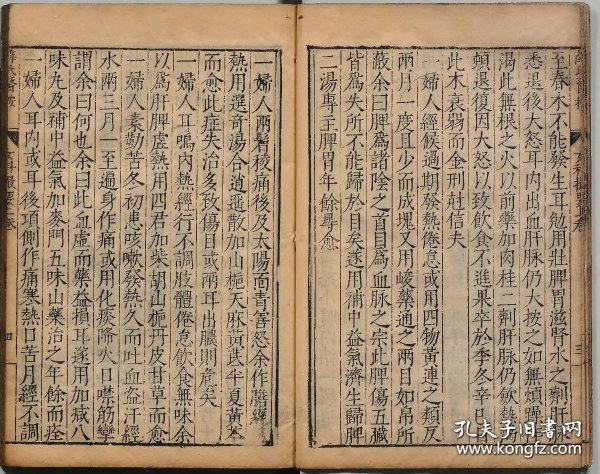 至春木不能發生耳勉用壯脾胃滋腎水之劑肝脉
悉退後大怒耳内出血肝脉仍大按之如無煩躁
湯此無根之火以前藥加肉桂二劑肝脉仍歛熱
頓退復因大怒以致飲食不進果卒於季冬辛巳
此木衰弱而金刑尅信夫
一婦人經候過期發熱倦怠或用四物黄連之類反
兩月一度且少而成塊又用峻藥通之兩目如帛所
蔽余曰脾爲諸陰之首目爲血脉之宗此脾傷五臓
皆爲失所不能歸於目矣遂用補中益氣濟生歸脾
二湯專主脾胃年餘尋愈
一婦人兩眉稜痛後及太陽面青善怒余作膽經
熱用選竒湯合逍遥散加山梔天麻黄芪半夏黄芩
而愈此症失治多致傷目或兩耳出膿則危矣
一婦人耳鳴内熱經行不調肢體倦怠飲食無味余
以爲肝脾虛熱用四君加柴胡山梔丹皮甘草而愈
一婦人素勤苦冬初患咳嗽發熱久而吐血盗汗經
水兩三月一至遍身作痛或用化痰降火口噤筋攣
謂余曰何也余曰此血虛而藥益損耳遂用加减八
味丸及補中益氣加麥門五味山藥治之年餘而痊
一婦人耳内或耳後項側作痛寒熱口苦月經不調
三
四
孔夫子旧書网